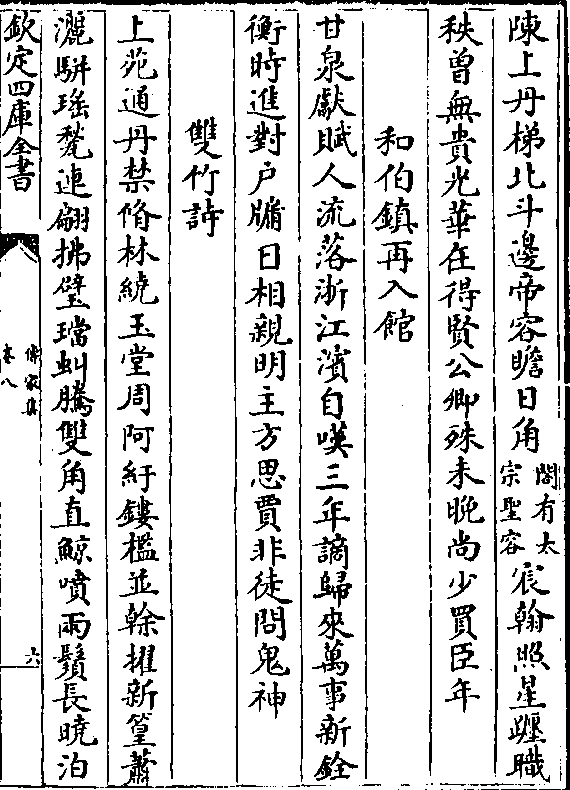 陳上丹梯北斗邊帝容瞻日角閣有太宗聖容宸翰照星躔職
秩曽無貴光華在得賢公卿殊未晚尚少買臣年
和伯鎮再入館
甘泉獻賦人流落浙江濱自嘆三年謫歸來萬事新銓
衡時進對户牖日相親明主方思賈非徒問鬼神
雙竹詩
上苑通丹禁脩林繞玉堂周阿紆鏤檻並榦擢新篁蕭
灑駢瑤甃連翩拂璧璫虯騰雙角直鯨噴兩鬚長曉泊
欽定四庫全書
傳家集
卷八
六